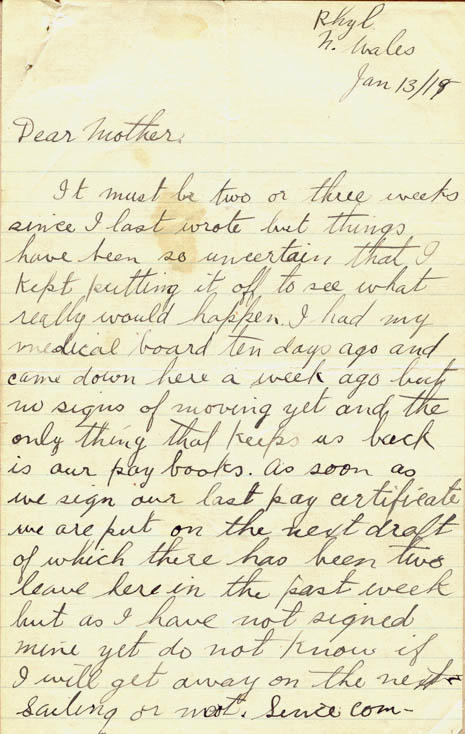 Rhyl
N. Wales
Jan 13/19
Dear Mother:
It must be two or three weeks
since I last wrote but things
have been so uncertain that I
kept putting it off to see what
really would happen. I had my
medical board ten days ago and
came down here a week ago but
no signs of moving yet and the
only thing that keeps us back
is our pay books. As soon as
we sign our last pay certificate
we are put on the next draft
of which there has been two
leave here in the past week
but as I have not signed
mine yet do not know if
I will get away on the next
sailing or not. Since com-